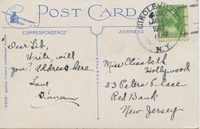 POST CARD
CORRESPONDENCE
ADDRESS
N.Y.
Dear Sib,
Write, will
you? Address here
Love
Miss Elizabeth
Hollywood
33 Peters Place
Red Bank
New Jersey